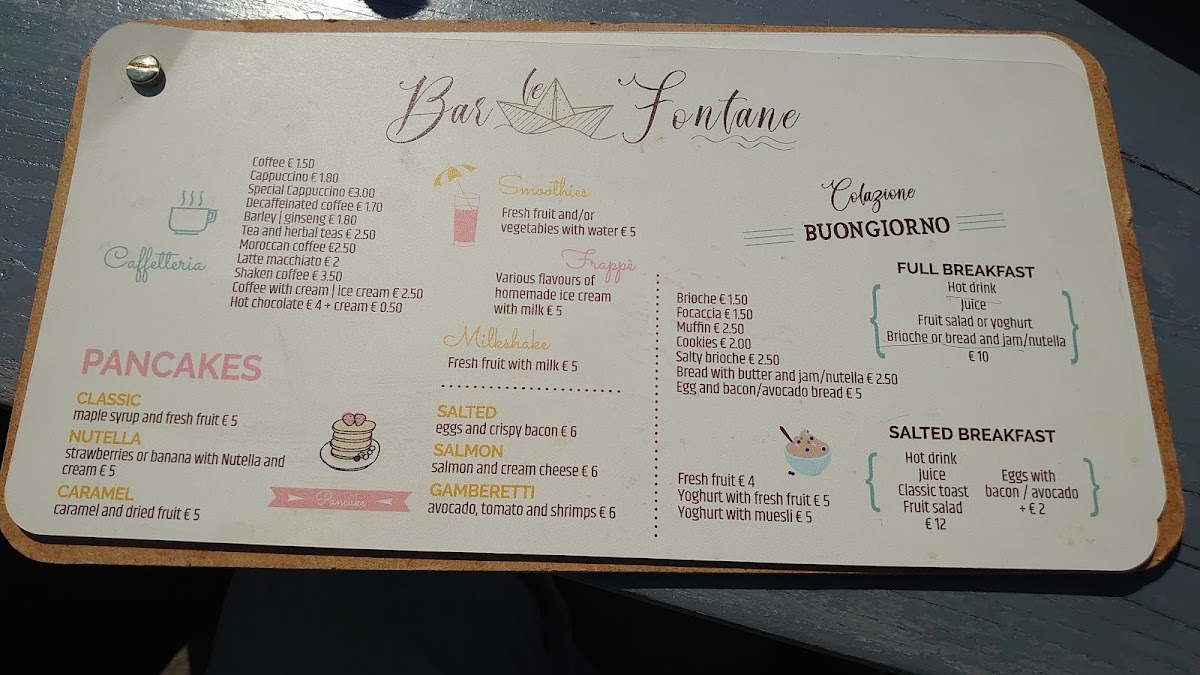 Bar le Fontane
Caffetteria
Coffee € 1.50
Cappuccino € 1.80
Special Cappuccino €3.00
Decaffeinated coffee € 1.70
Barley | ginseng € 1.80
Tea and herbal teas € 2.50
Moroccan coffee €2.50
Latte macchiato € 2
Shaken coffee € 3.50
Coffee with cream | Ice cream € 2.50
Hot chocolate € 4 + cream € 0.50
Smoothies
Fresh fruit and/or
vegetables with water € 5
Frappè
Various flavours of
homemade ice cream
with milk € 5
Milkshake
Fresh fruit with milk € 5
PANCAKES
CLASSIC
maple syrup and fresh fruit € 5
NUTELLA
strawberries or banana with Nutella and
cream € 5
CARAMEL
caramel and dried fruit € 5
Pancake
SALTED
eggs and crispy bacon € 6
SALMON
salmon and cream cheese € 6
GAMBERETTI
avocado, tomato and shrimps € 6
Colazione
BUONGIORNO
Brioche € 1.50
Focaccia € 1.50
Muffin € 2.50
Cookies € 2.00
Salty brioche € 2.50
Bread with butter and jam/nutella € 2.50
Egg and bacon/avocado bread € 5
Fresh fruit € 4
Yoghurt with fresh fruit € 5
Yoghurt with muesli € 5
FULL BREAKFAST
Hot drink
Juice
Fruit salad or yoghurt
Brioche or bread and jam/nutella
€ 10
SALTED BREAKFAST
Hot drink
Juice
Classic toast
Fruit salad
€ 12
Eggs with
bacon / avocado
+ € 2